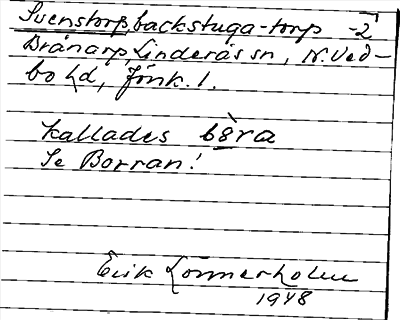 Svenstorp backstuga-torp -2
Brånarp, Linderås sn, N. Ved-
bo hd, Jönk. l.
Kallades bòra
Se Borran!
Erik Lönnerholm
1948